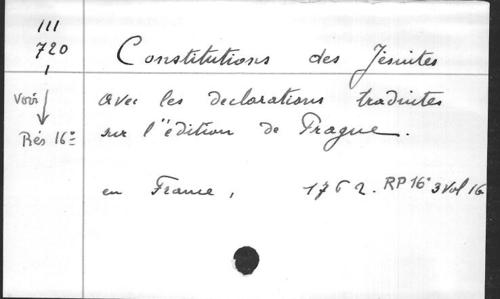 III
720
1
Constitutions des Jésuites
Voir
avec les declarations traduites
Rés 16°
sur l'édition de Prague.
en France, 1762. RP 16° 3 vol 16